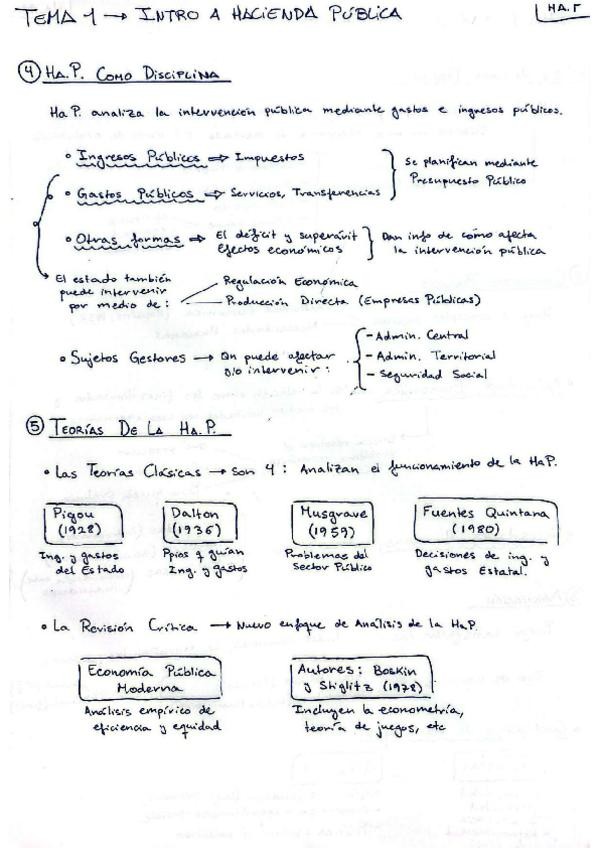 TEMA 1 → INTRO A HACIENDA PÚBLICA
HA.P
④ HA.P. COMO DISCIPLINA
Ha P. analiza la intervención pública mediante gastos e ingresos públicos.
• Ingresos Públicos ⇒ Impuestos
• Gastos Públicos ⇒ Servicios, Transferencias
Se planifican mediante
Presupuesto Público
• Otras formas ⇒ El déficit y superávit
efectos económicos
Dan info de cómo afecta
la intervención pública
El estado también
puede intervenir
por medio de:
Regulación Económica
Producción Directa (Empresas Públicas)
• Sujetos Gestores → Qn puede afectar
y/o intervenir:
- Admin. Central
- Admin. Territorial
- Seguridad Social
⑤ TEORÍAS DE LA HA.P.
• Las Teorías Clásicas → Son 4: Analizan el funcionamiento de la HaP.
Pigou
(1928)
Ing. y gastos
del Estado
Dalton
(1936)
Ppios q guían
Ing. y gastos
Musgrave
(1959)
Problemas del
Sector Público
Fuentes Quintana
(1980)
Decisiones de ing. y
gastos Estatal.
• La Revisión Crítica → Nuevo enfoque de Análisis de la HaP.
Economía Pública
Moderna
Análisis empírico de
eficiencia y equidad
Autores: Boskin
y Stiglitz (1978)
Incluyen la econometría,
teoría de juegos, etc